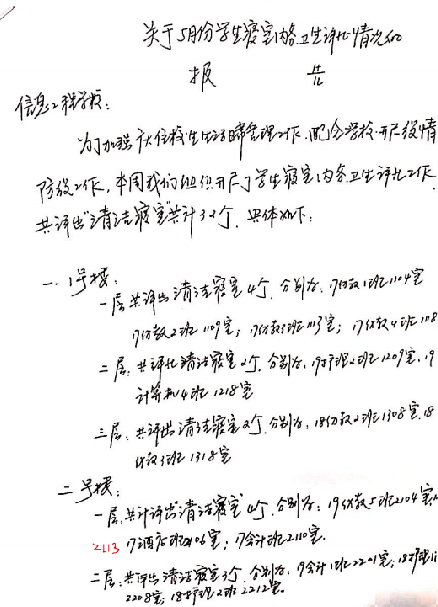 关于5月份学生寝室内务卫生评比情况的
报 告
信息工程学校:
为了加强 住校生 管理工作,配合学校开展疫情
防疫工作,本周我们组织开展了学生寝室内务卫生评比工作
共评出"清洁寝室"共计32个,具体如下:
一、1号楼:
一层共评出清洁寝室4个,分别为:17幼教1班1104室
17幼教2班1109室;17幼教3班1113室;17幼教4班108
二层:共评出清洁寝室2个,分别为:19护理2班1209室,19
计算机4班1218室
三层:共评出清洁寝室2个,分别为:18幼教2班1308室,18
幼教3班1318室
二号楼:
一层:共计评出"清洁寝室"4个,分别为:19幼教5班2104室,
2113 17酒店 班2106室;17会计班2110室.
二层:共评出清洁寝室3个,分别为,19会计1班2201室;18护理
2208室;18护理2班2212室.